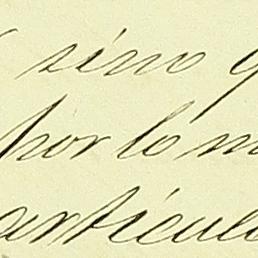 sino
por lo m
articulo